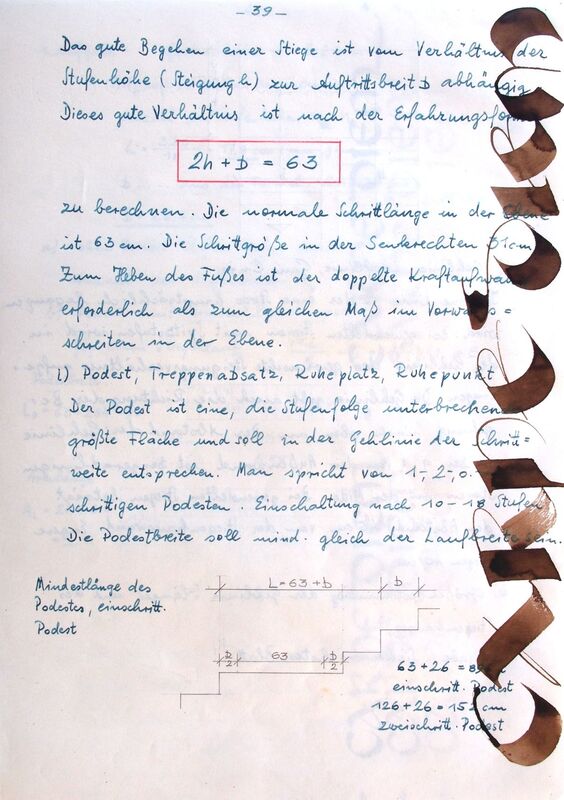 - 39 -
Das gute Begehen einer Stiege ist vom Verhältnis der
Stufenhöhe (Steigung h) zur Auftrittsbreit D abhängig.
Dieses gute Verhältnis ist nach der Erfahrungsformel
2h + D = 63
zu berechnen. Die normale Schrittlänge in der Ebene
ist 63 cm. Die Schrittgröße in der Senkrechten 31 cm
Zum Heben des Fußes ist der doppelte Kraftaufwand
erforderlich als zum gleichen Maß im Vorwärts =
schreiten in der Ebene.
i) Podest, Treppenabsatz, Ruheplatz, Ruhepunkt
Der Podest ist eine, die Stufenfolge unterbrechende
größte Fläche und soll in der Gehlinie der Schritt=
weite entsprechen. Man spricht von 1-, 2-, o.
schrittigen Podesten. Einschaltung nach 10-18 Stufen
Die Podestbreite soll mind. gleich der Laufbreite sein.
Mindestlänge des
Podestes, einschritt.
Podest
L = 63 + D
D
D/2
63
D/2
63 + 26 =
einschritt. Podest
126 + 26 = 152 cm
zweischritt. Podest